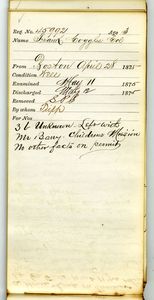 Reg. No. 150021 Age 3
Name Frank Goggles Eve
From Boston April 28 1875
Condition Free
Examined May 11 1875
Discharged May 12 1875
Removed
By whom
For No.
36 Unknown. Left with
Mr Barry Childrens Mission
No other facts on permit